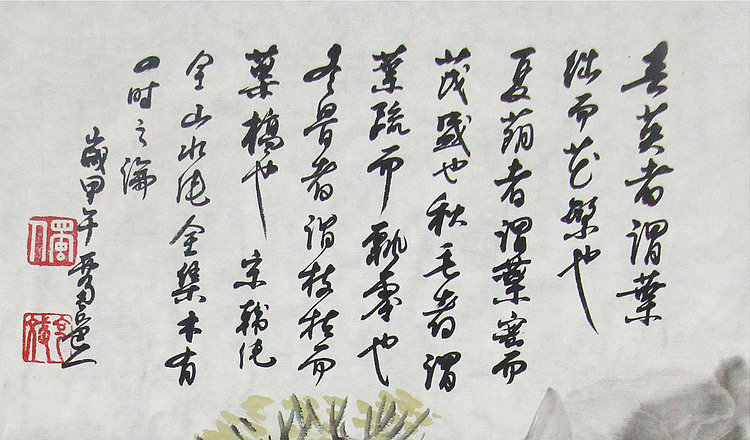 春英者謂葉
細而花繁也
夏蔭者謂葉密而
茂盛也秋毛者謂
葉疏而飄零也
冬骨者謂枝枯而
葉槁也 宋韓純
全山水純全集木有
四時之論
歲甲午